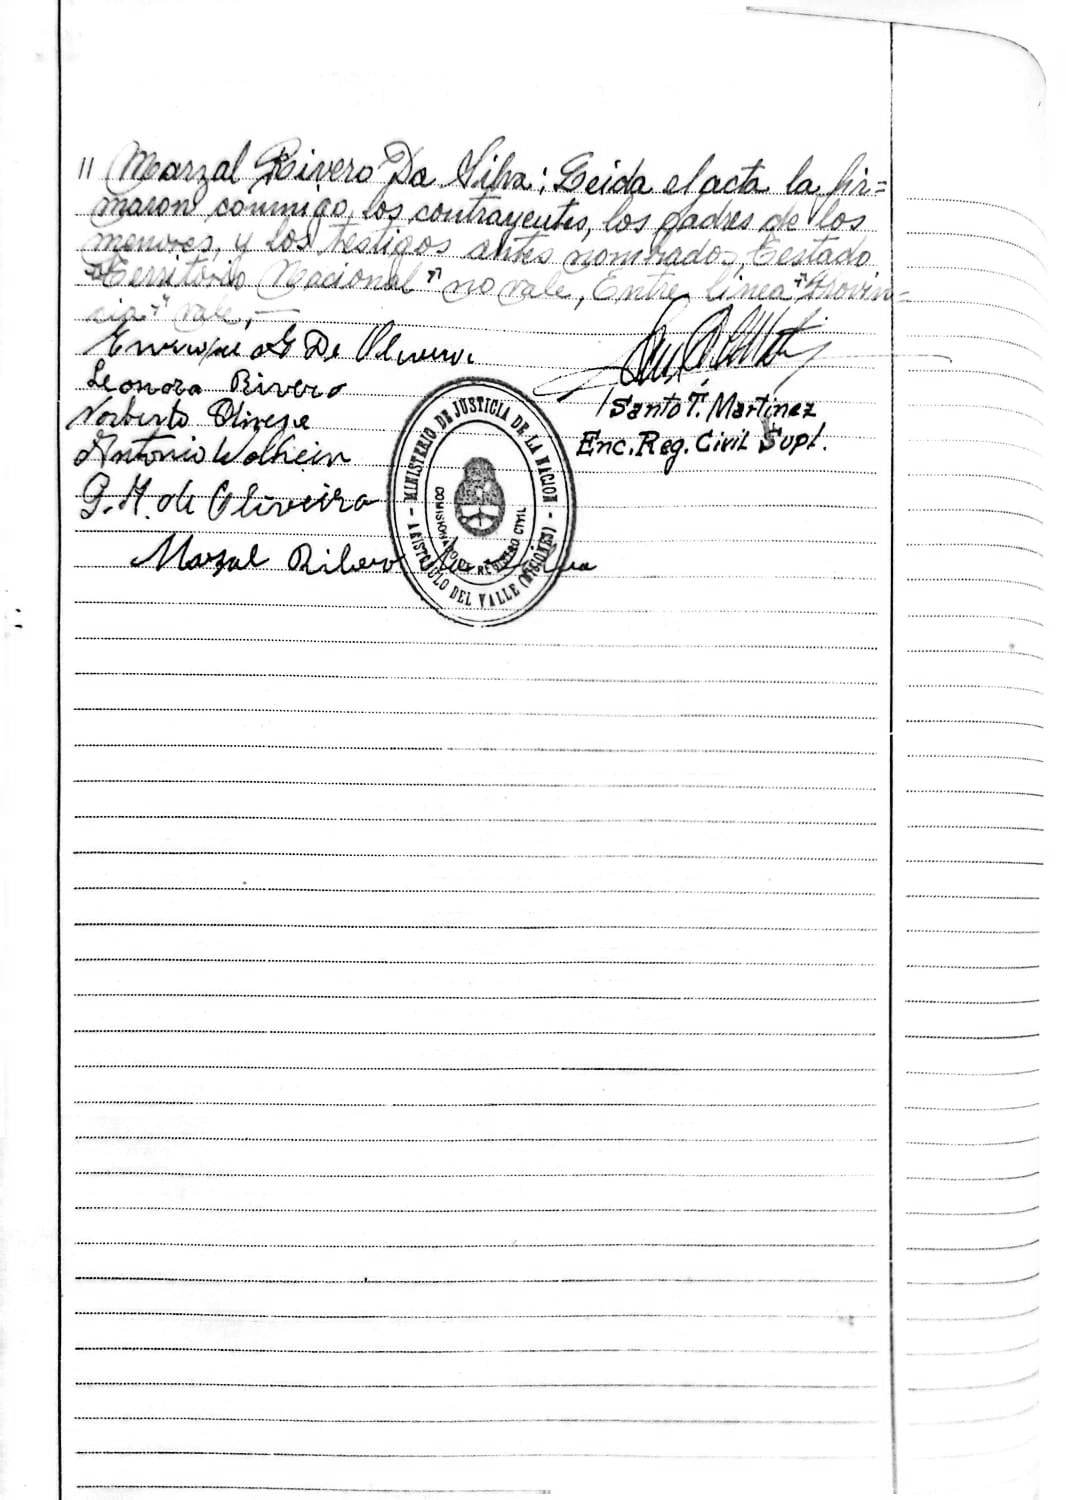 " Marzal Rivero Da Silva; Leida el acta la fir=
maron conmigo, los contrayentes, los padres de los
menores, y los testigos antes nombrados, Testado
"Territorio Nacional" no vale, Entre linea "Provin-
cia" vale, —
Enrique G De Olivera
Leonora Rivero
Norberto Olivera
Antonio Wolhein
G. H. de Oliveira
Marzal Ribero Da Silva
Santo T. Martinez
Enc. Reg. Civil Supl.
- MINISTERIO DE JUSTICIA DE LA NACION -
ARISTOBULO DEL VALLE (MISIONES)
REGISTRO CIVIL